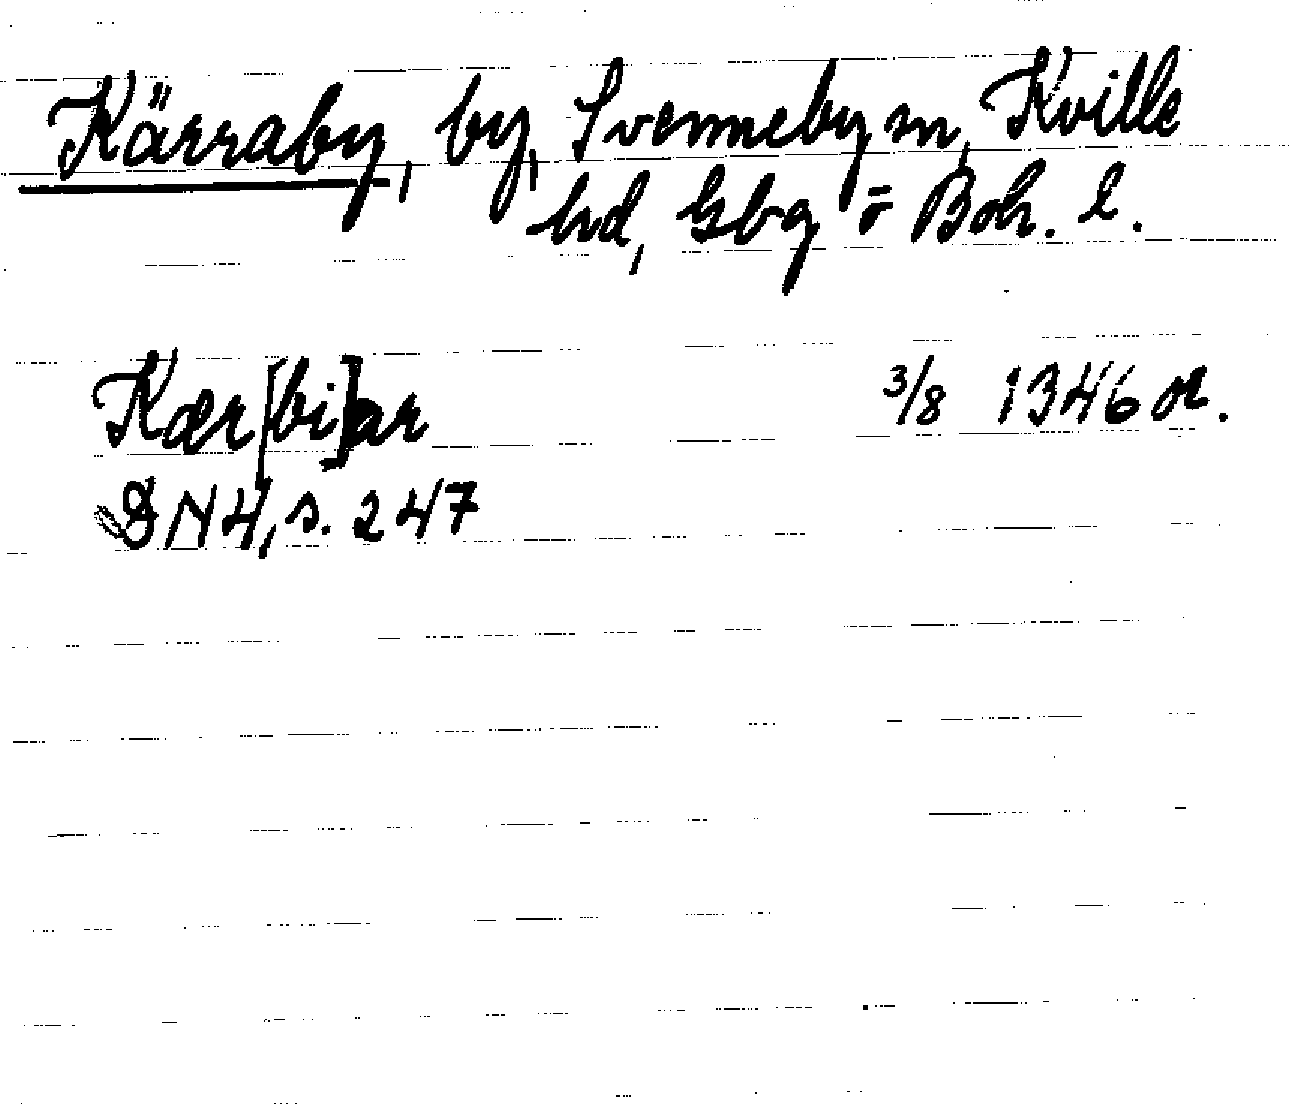 Kärraby, by, Svenneby sn, Kville
hd, Gbg o Boh. l.
Kær[bi]ar 3/8 1346 or.
DN 4, s. 247